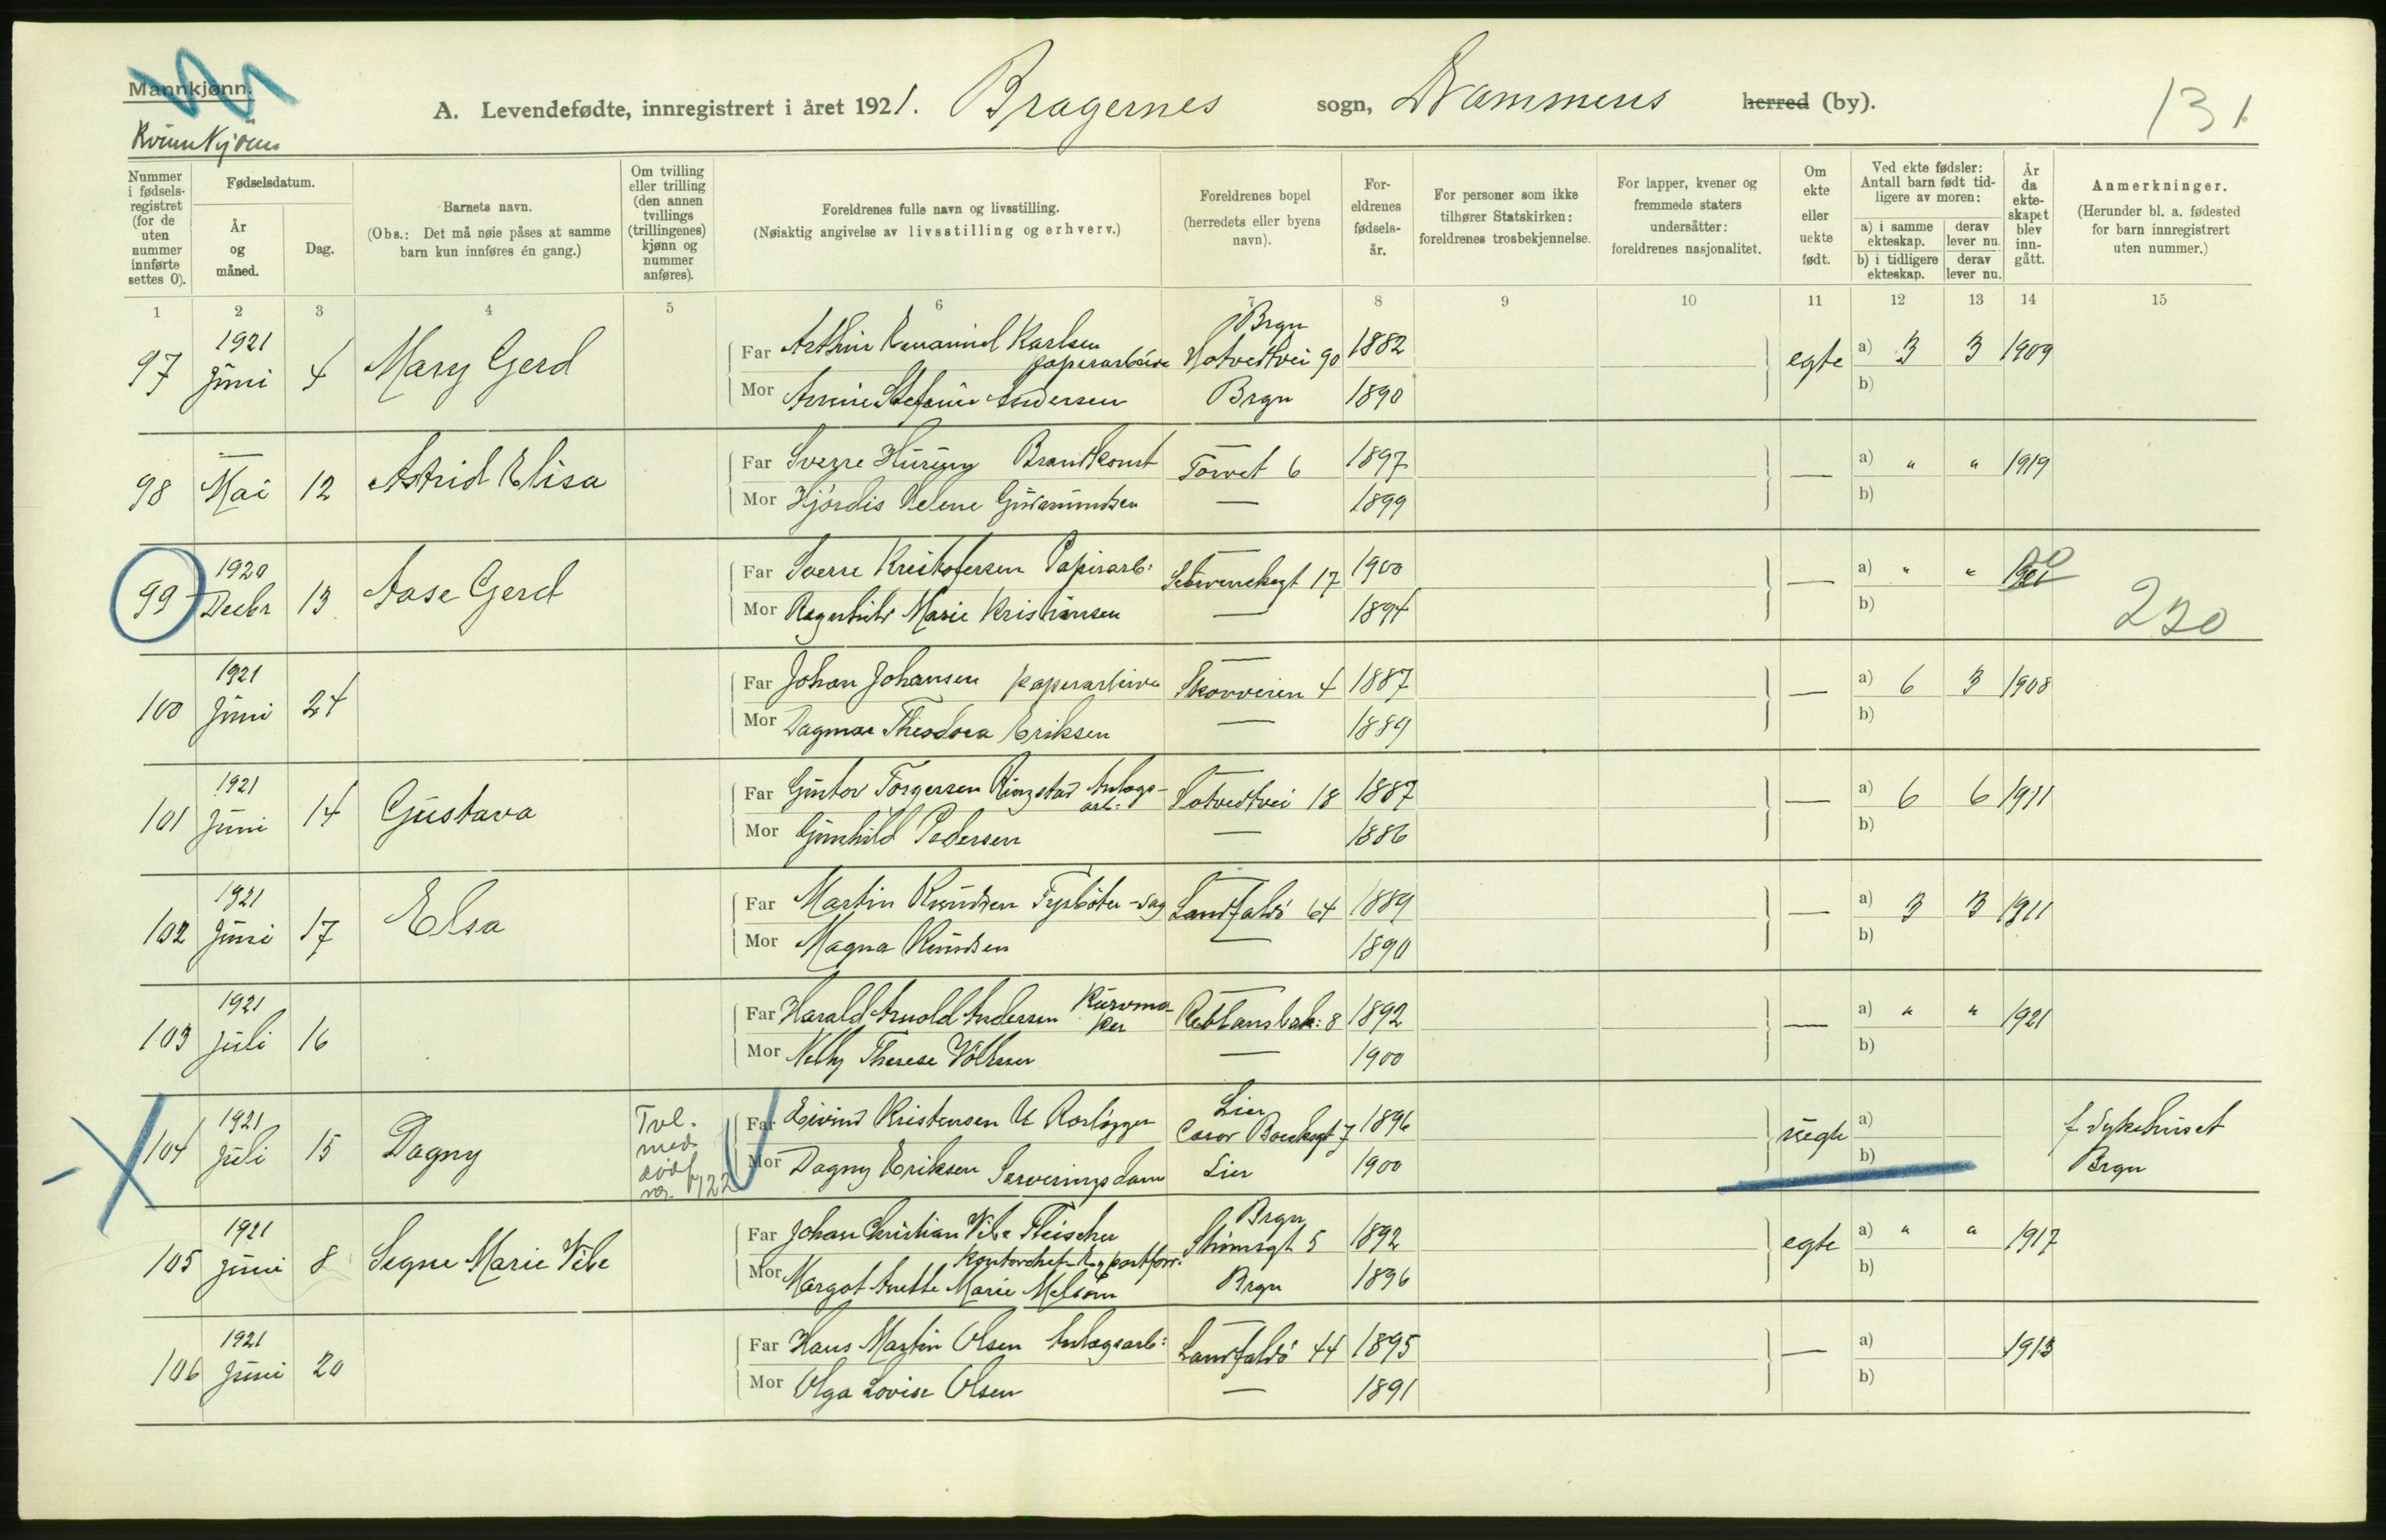 Mannkjønn.
Kvinnkjønn
A. Levendefødte, innregistrert i året 1921. Bragernes sogn, Drammens herred (by).
131
Nummer i fødsels-registret (for de uten nummer innførte settes 0).
Fødselsdatum.
År og måned.
Dag.
Barnets navn.
(Obs.: Det må nøie påses at samme barn kun innføres én gang.)
Om tvilling eller trilling (den annen tvillings (trillingenes) kjønn og nummer anføres).
Foreldrenes fulle navn og livsstilling.
(Nøiaktig angivelse av livsstilling og erhverv.)
Foreldrenes bopel (herredets eller byens navn).
For-eldrenes fødsels-år.
For personer som ikke tilhører Statskirken: foreldrenes trosbekjennelse.
For lapper, kvener og fremmede staters undersåtter: foreldrenes nasjonalitet.
Om ekte eller uekte født.
Ved ekte fødsler: Antall barn født tid-ligere av moren:
a) i samme ekteskap.
derav lever nu.
b) i tidligere ekteskap.
derav lever nu.
År da ekte-skapet blev inn-gått.
Anmerkninger.
(Herunder bl. a. fødested for barn innregistrert uten nummer.)
1 2 3 4 5 6 7 8 9 10 11 12 13 14 15
97 1921 Juni 4 Mary Gerd
Far Arthur Emanuel Karlsen papirarbeider Brgn Hotvedtvei 90 1882 egte a) 3 3 1909
Mor Annie Stefanie Andersen Brgn 1890 b)
98 — Mai 12 Astrid Elisa
Far Sverre Huseby Brandkonst — Torvet 6 1897 — a) " " 1919
Mor Hjördis Helene Gudmundsen — 1899 b)
99 1920 Decbr 13 Aase Gerd
Far Sverre Kristofersen Papirarb: — Schwenckegt 17 1900 — a) " " 20
Mor Ragnhild Marie Kristiansen — 1894 b)
230
100 1921 Juni 24
Far Johan Johansen papirarbeider — Skovveien 4 1887 — a) 6 3 1908
Mor Dagmar Theodora Eriksen — 1889 b)
101 1921 Juni 14 Gustava
Far Guntov Torgersen Ringstad Anlægs-arb. — Hotvedtvei 18 1887 — a) 6 6 1911
Mor Gunhild Pedersen — 1886 b)
102 1921 Juni 17 Elsa
Far Martin Knudsen Fyrbøter-sag — Landfaldö 64 1889 — a) 3 3 1911
Mor Magna Knudsen — 1890 b)
103 1921 Juli 16
Far Harald Arnold Andersen Kurvmaker — 8 1892 — a) " " 1921
Mor Nelly Therese — 1900 b)
104 1921 Juli 15 Dagny Tvl. med dödf 122
Far Eivind Kristensen Rørlægger Lier 7 1896 uegte a) f. Sykehuset
Mor Dagny Eriksen Serveringsdame Lier 1900 b) Brgn
105 1921 Juni 8 Segne Marie Vibe
Far Johan Christian Vibe Fleischer Brgn Strömsgt 5 1892 egte a) " " 1917
Kontorchef Exportforr.
Mor Margot Anette Marie Melsom Brgn 1896 b)
106 1921 Juni 20
Far Hans Martin Olsen Anlægsarb: — Landfaldö 44 1895 — a) 1913
Mor Olga Lovise Olsen — 1891 b)